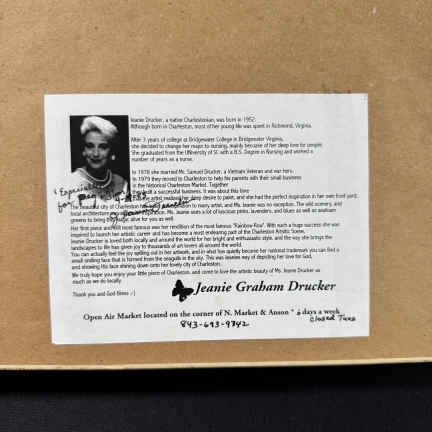 Jeanie Drucker, a native Charlestonian, was born in 1952.
Although born in Charleston, most of her young life was spent in Richmond, Virginia.
After 3 years of college at Bridgewater College in Bridgewater, Virginia,
she decided to change her major to nursing, mainly because of her deep love for people.
She graduated from the UNiversity of SC with a B.S. Degree in Nursing and worked a
number of years as a nurse.
In 1978 she married Mr. Samuel Drucker, a Vietnam Veteran and war hero.
In 1979 they moved to Charleston to help his parents with their small business
in the historical Charleston Market. Together
they built a successful business. It was about this time
artist realized her deep desire to paint, and she had the perfect inspiration in her own front yard.
"Especially
for Peg
The beautiful city of Charleston inspiration to many artist, and Ms. Jeanie was no exception. The wild scenery, and
local architecture inspiration. Ms. Jeanie uses a lot of luscious pinks, lavenders, and blues as well as seafoam
greens to bring the magic alive for you as well.
Her first piece and most famous was her rendition of the most famous "Rainbow Row". With such a huge success she was
inspired to launch her artistic career and has become a most endearing part of the Charleston Artistic Scene.
Jeanie Drucker is loved both locally and around the world for her bright and enthusiastic style, and the way she brings the
landscapes to life has given joy to thousands of art lovers all around the world.
You can actually feel the joy spilling out in her artwork, and in what has quietly become her national trademark you can find a
small smiling face that is formed from the seagulls in the sky. This was Jeanies way of depicting her love for God,
and showing His face shining down onto her lovely city of Charleston.
We truly hope you enjoy your little piece of Charleston, and come to love the artistic beauty of Ms. Jeanie Drucker as
much as we do locally.
Thank you and God Bless :-)
Jeanie Graham Drucker
Open Air Market located on the corner of N. Market & Anson * 6 days a week
closed Tues
843-693-9742